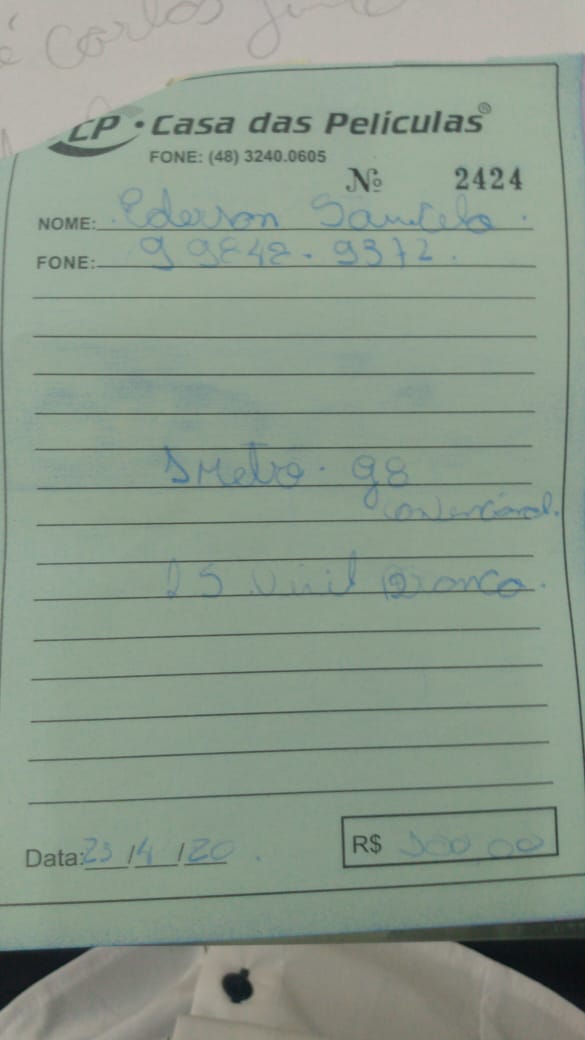 é Carlos
CP • Casa das Películas®
FONE: (48) 3240.0605
Nº 2424
NOME: Ederson
FONE: 9 9842-9372.
G8
convencional.
Vinil Branco.
Data: 23/4/20.
R$ 300,00